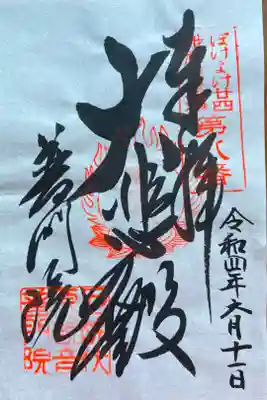 奉拝
令和四年六月十一日
ぼけよけ廿四
第八番
大悲殿
普門院